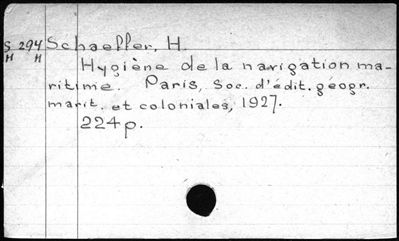 S 294 Schaeffer, H.
H H
Hygiène de la navigation ma-
ritime. Paris, Soc. d'édit. géogr.
marit. et coloniales, 1927.
224 p.